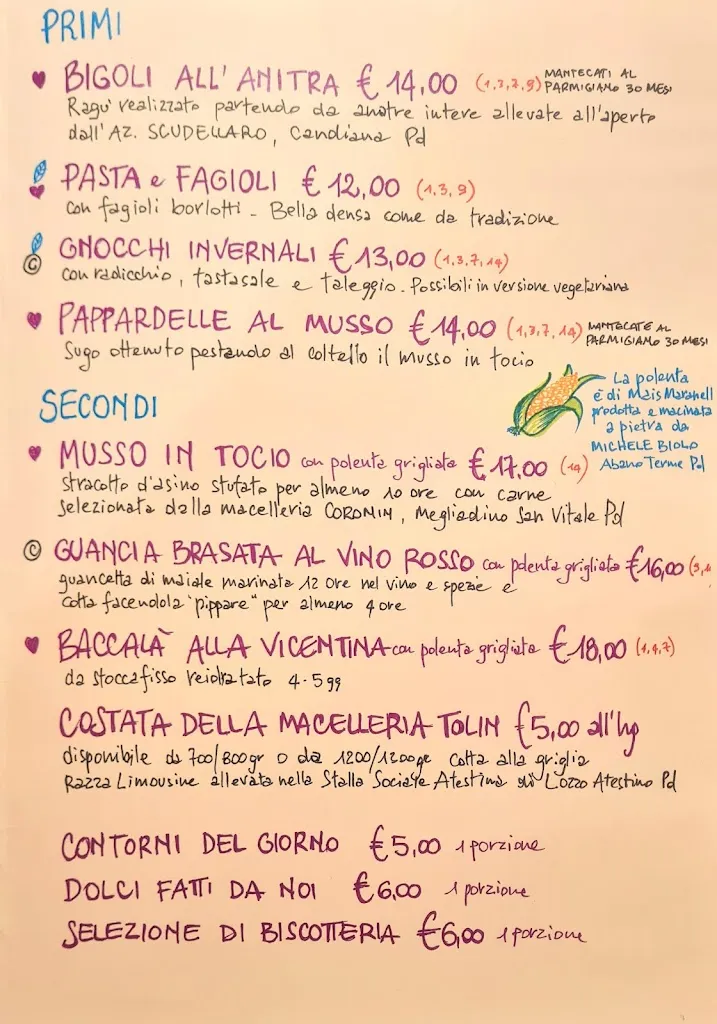 PRIMI
BIGOLI ALL'ANITRA € 14,00 (1,3,7,9) MANTECATI AL
PARMIGIANO 30 MESI
Ragu' realizzato partendo da anatre intere allevate all'aperto
dall'AZ. SCUDELLARO, Candiana Pd
PASTA e FAGIOLI € 12,00 (1,3,9)
con fagioli borlotti - Bella densa come da tradizione
GNOCCHI INVERNALI € 13,00 (1,3,7,14)
© con radicchio, tastasale e taleggio. Possibili in versione vegetariana
PAPPARDELLE AL MUSSO € 14,00 (1,3,7,14) MANTECATE AL
PARMIGIANO 30 MESI
Sugo ottenuto pestando al coltello il musso in tocio
SECONDI
La polenta
è di Mais Maranell
prodotta e macinata
a pietra da
MICHELE BIOLO
Abano Terme Pd
MUSSO IN TOCIO con polenta grigliata € 17,00 (14)
stracotto d'asino stufato per almeno 10 ore con carne
selezionata dalla macelleria CORDNIN, Megliadino San Vitale Pd
© GUANCIA BRASATA AL VINO ROSSO con polenta grigliata € 16,00
guancetta di maiale marinata 12 ore nel vino e spezie e
cotta facendola "pippare" per almeno 4 ore
BACCALÀ ALLA VICENTINA con polenta grigliata € 18,00 (1,4,7)
da stoccafisso reidratato 4-5 gg
COSTATA DELLA MACELLERIA TOLIN € 5,00 all'hg
disponibile da 700/800gr o da 1200/1200gr cotta alla griglia
Razza Limousine allevata nella Stalla Sociale Atestina di Lozzo Atestino Pd
CONTORNI DEL GIORNO € 5,00 1 porzione
DOLCI FATTI DA NOI € 6,00 1 porzione
SELEZIONE DI BISCOTTERIA € 6,00 1 porzione